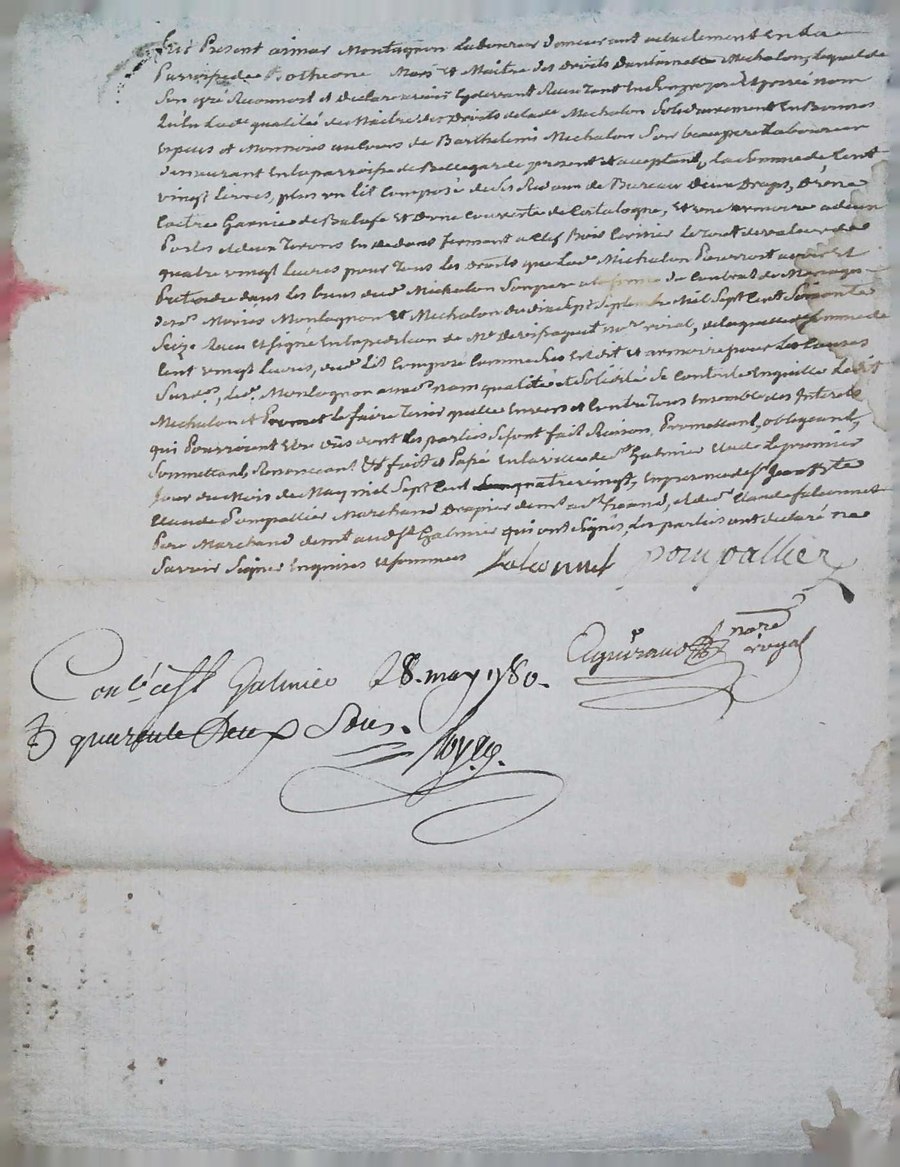 Fut Present aimar Montagnon Laboureur demeurant actuellement En La
Parroisse de Rotheone Mary et Maitre des Droits Dantoinette Michalon, lequel de
Son gré Reconnoit et Declare avoir cy devant Reçu tant En son propre et privé nom
qu'En La de qualité de Maitre des Droits de lade Michalon Solidairement En Bonnes
Especes et Monnoies au Cours de Barthelemi Michalon Son beaupere Laboureur
demeurant En la parroisse de Bellegarde present et aceptant, la Somme de Cent
vingt Livres, plus un lit Composé de de Bureau Deux Draps, D'une
Catre Garnie de Balafe Et D'une Couverte de Catalogne, Et une armoire a deux
Portes et deux Tirons En dedans fermant a Clef Bois Cerisier Le tout de valeur de
quatre vingt Livres pour Tous les Droits que Lade Michalon Pourroit avoir Et
Pretendre dans les biens dud Michalon Son pere a la forme du Contrat de Mariage
desd Maries Montagnon Et Michalon du dixsept Septembre Mil Sept Cent Soixante
Seize Reçu Et Signé En Expedition de Me nore royal, de laquelle Somme de
Cent vingt Livres, dud lit Composé Comme dit Est et armoire pour les Causes
Susd, led Montagnon aud nom qualité et Solidité Se Contente En quitte Ledit
Michalon et Promet le faire Tenir quitte Envers et Contre Tous Ensemble des Interets
qui Pourroient Etre dûs dont les parties Se sont fait Raison, Promettant, obligeant,
Soumettant, Renonceant &a fait et Passé En la ville de St Galmier Etude Le premier
Jour du Mois de May mil Sept Cent quatre vingt, En presence de Sr Jean Bte
Claude Pompallier Marchand Drapier demt a St , et de Sr Claude falconnet
Pere Marchand demt aud St Galmier qui ont Signés, Les parties ont declaré ne
Savoir Signer Enquises et Sommées Falconnet pompallier
Aguiraud nore royal
Conlé a St Galmier 28. may 1780.
R quarente Deux Sous.